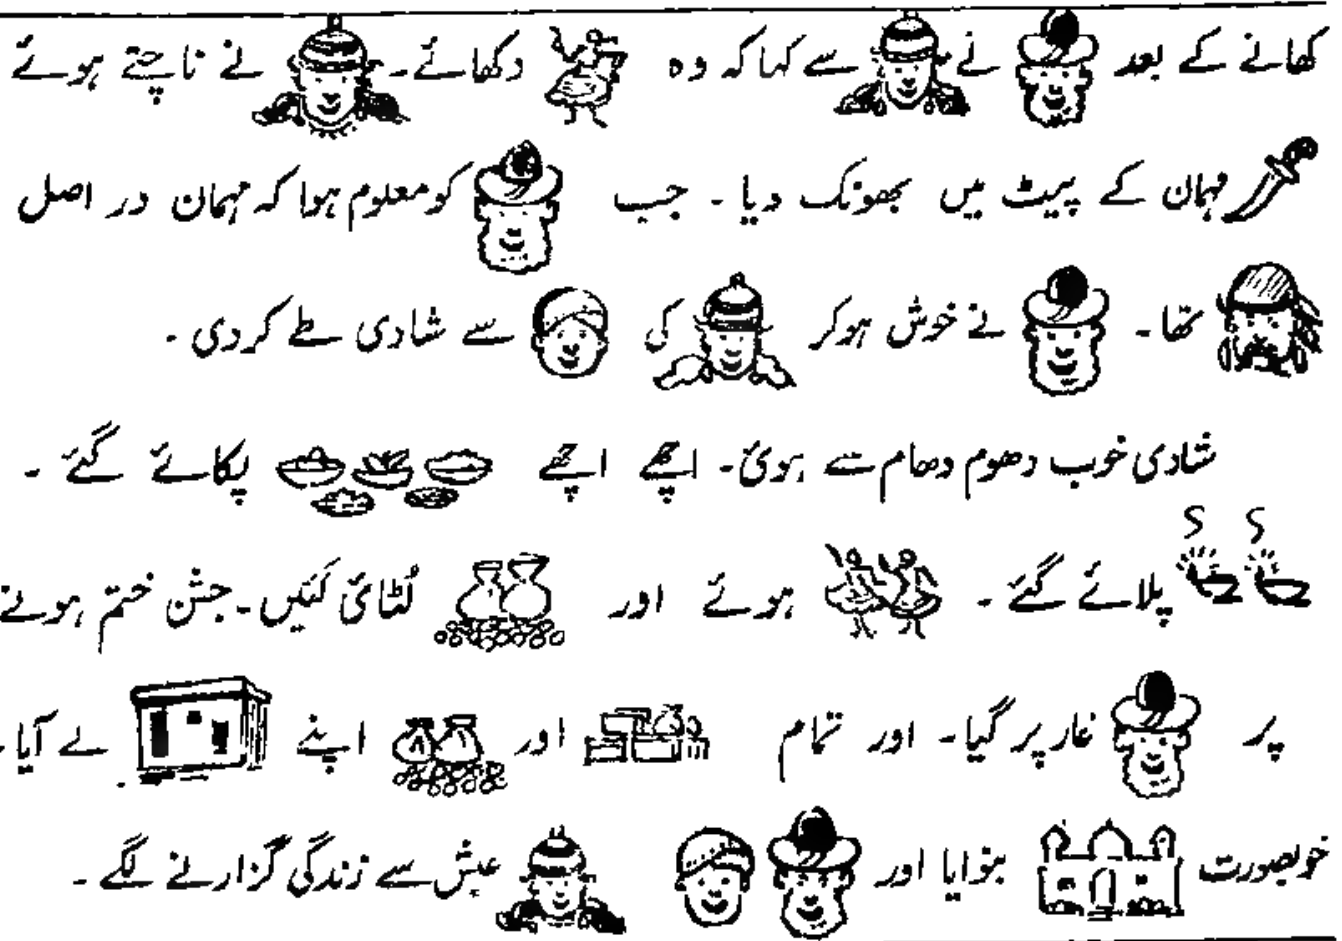 کھانے کے بعد نے سے کہا کہ وہ دکھائے۔ نے ناچتے ہوئے
مہمان کے پیٹ میں بھونک دیا۔ جب کو معلوم ہوا کہ مہمان در اصل
تھا۔ نے خوش ہوکر کی سے شادی طے کردی۔
شادی خوب دھوم دھام سے ہوئی۔ اچھے اچھے پکائے گئے۔
پلائے گئے۔ ہوئے اور لُٹائی گئیں۔ جشن ختم ہونے
پر غار پر گیا۔ اور تمام اور اپنے لے آیا۔
خوبصورت بنوایا اور عیش سے زندگی گزارنے لگے۔